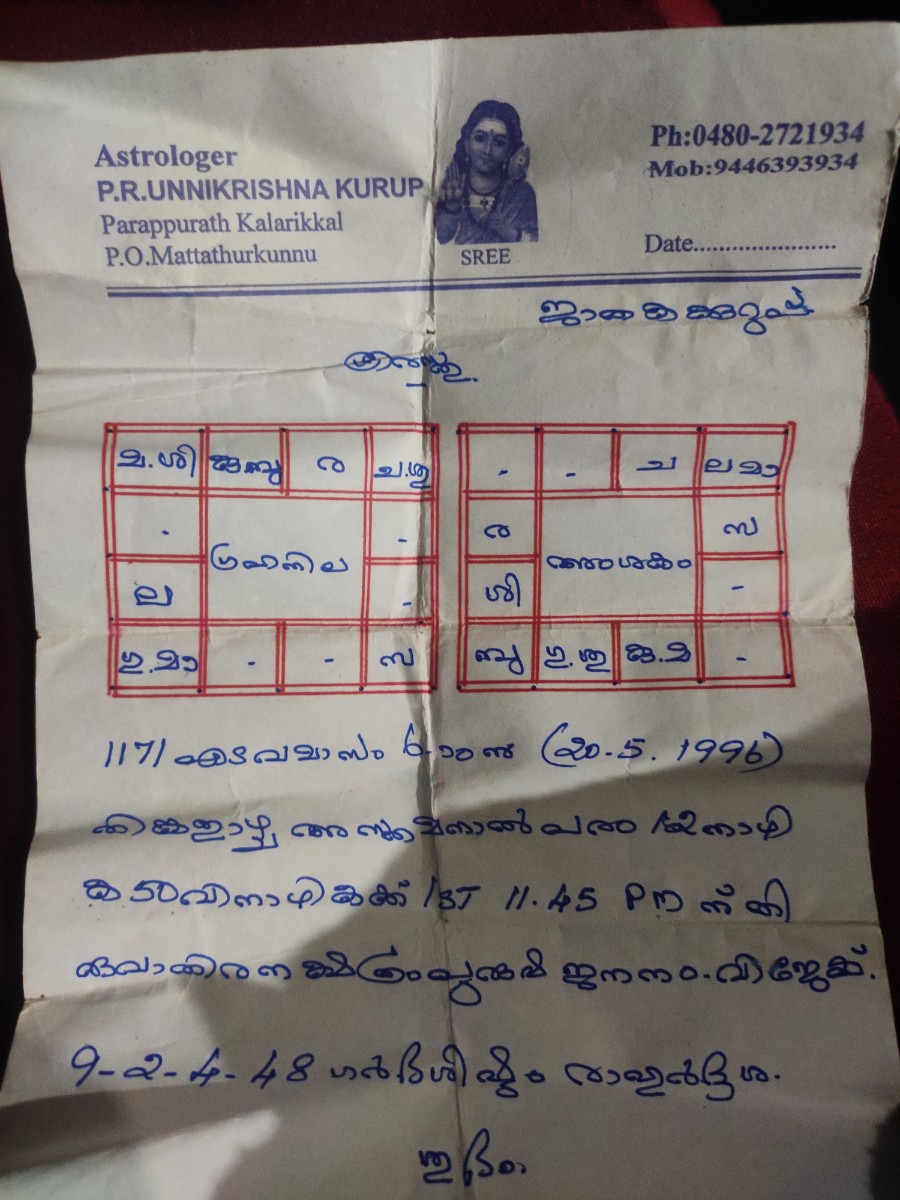 Astrologer
P.R.UNNIKRISHNA KURUP
Parappurath Kalarikkal
P.O.Mattathurkunnu
SREE
Ph:0480-2721934
Mob:9446393934
Date......................
ജാതകക്കുറുപ്പ്
മ.ശി
കുബു
ര
ച.ശു
.
ഗ്രഹനില
-
ല
-
ഗു.മാ
.
-
സ
-
-
ച
ലമാ
ര
അംശകം
സ
ശി
-
ബു
ഗു.ശു
കു.മ
-
1171 എടവമാസം 6-ാംനു (20.5.1996)
തിങ്കളാഴ്ച അസ്തമനാൽപരം 12നാഴി
ക 50വിനാഴികക്ക് IST 11.45 PM ന് തി
രുവാതിരനക്ഷത്രം പുരുഷ ജനനം.
9-2-4-48 ഗർഭശിഷ്ടം രാഹുർദ്ദശ.
ശുഭം.